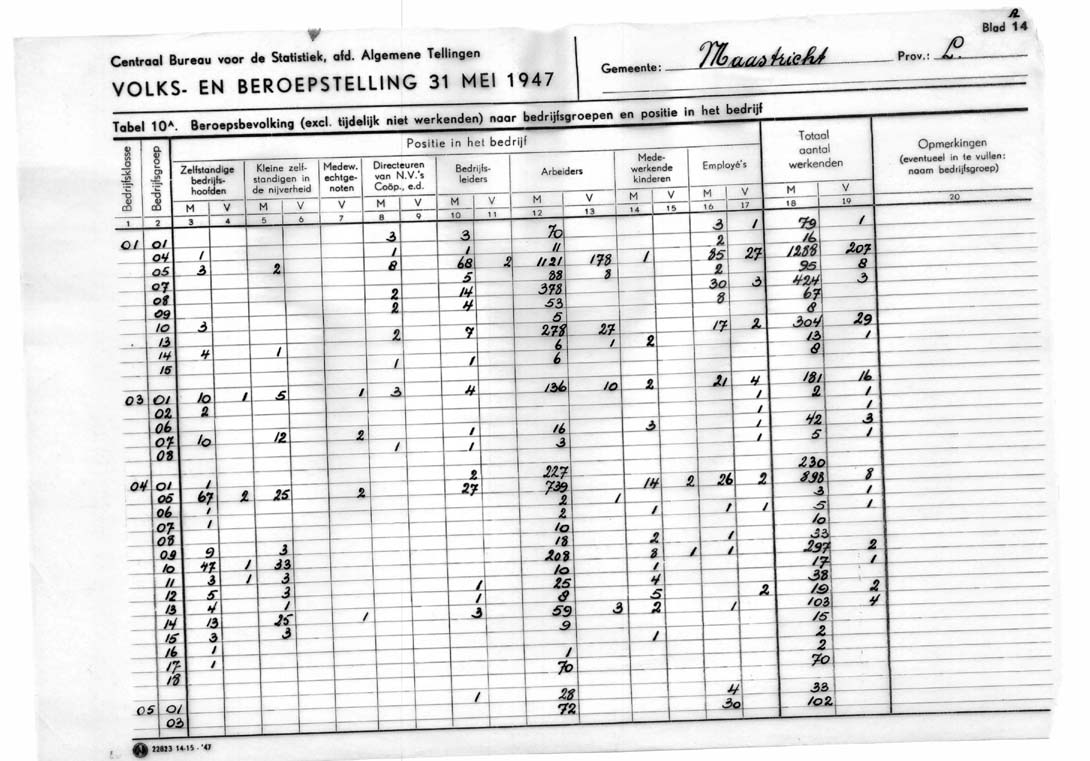 R
Blad 14
Centraal Bureau voor de Statistiek, afd. Algemene Tellingen
VOLKS- EN BEROEPSTELLING 31 MEI 1947
Gemeente: Maastricht Prov.: L.
Tabel 10A. Beroepsbevolking (excl. tijdelijk niet werkenden) naar bedrijfsgroepen en positie in het bedrijf
Bedrijfsklasse
Bedrijfsgroep
Positie in het bedrijf
Zelfstandige bedrijfs-hoofden
Kleine zelf-standigen in de nijverheid
Medew. echtge-noten
Directeuren van N.V.'s Coöp., e.d.
Bedrijfs-leiders
Arbeiders
Mede-werkende kinderen
Employé's
Totaal aantal werkenden
Opmerkingen (eventueel in te vullen: naam bedrijfsgroep)
M V M V V M V M V M V M V M V M V
1 2 3 4 5 6 7 8 9 10 11 12 13 14 15 16 17 18 19 20
01 01 3 3 70 3 1 79 1
04 1 1 1 11 2 16
05 3 2 8 68 2 1121 178 1 85 27 1288 207
07 5 88 8 2 95 8
08 2 14 378 30 3 424 3
09 2 4 53 8 67
10 3 5 8
13 2 7 278 27 17 2 304 29
14 4 1 6 1 2 13 1
15 1 1 6 8
03 01 10 1 5 1 3 4 136 10 2 21 4 181 16
02 2 1 2 1
06 1 1
07 10 12 2 1 16 3 1 42 3
08 1 1 3 1 5 1
04 01 1 2 227 230
05 67 2 25 2 27 739 14 2 26 2 898 8
06 1 2 1 3 1
07 1 2 1 1 1 5 1
08 10 10
09 9 3 18 2 1 33
10 47 1 33 208 8 1 1 297 2
11 3 1 3 10 1 17 1
12 5 3 1 25 4 38
13 4 1 1 8 5 2 19 2
14 13 25 1 3 59 3 2 1 103 4
15 3 3 9 15
16 1 1 2
17 1 1 2
18 70 70
05 01 1 28 4 33
03 72 30 102
22823 14-15 - '47